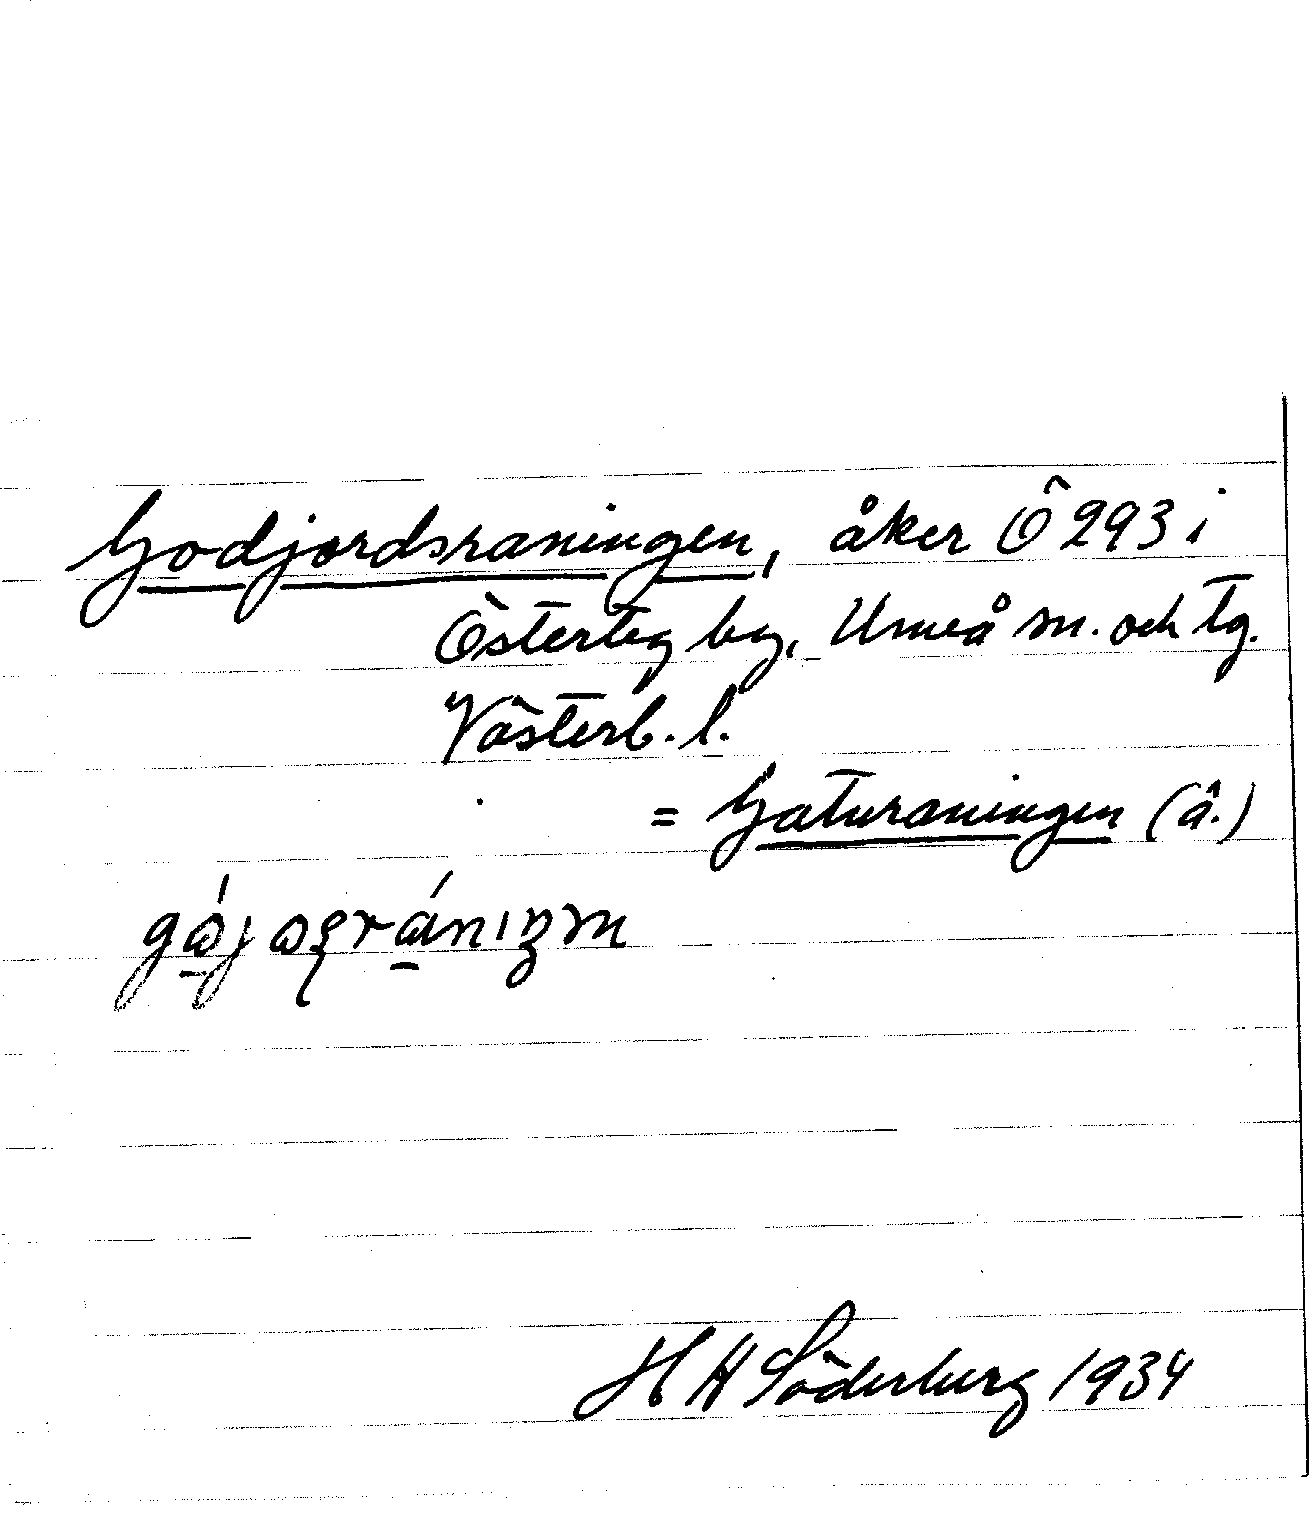 Godjordsraningen, åker Ö 293 i
Österteg by, Umeå sn. och tg.
Västerb. l.
= Gaturaningen (å.)
H H Söderberg 1934